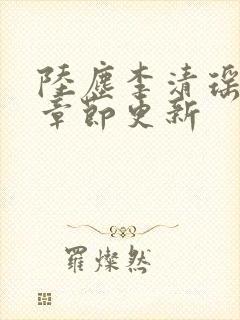 陸塵李清瑤
章節更新
羅燦然